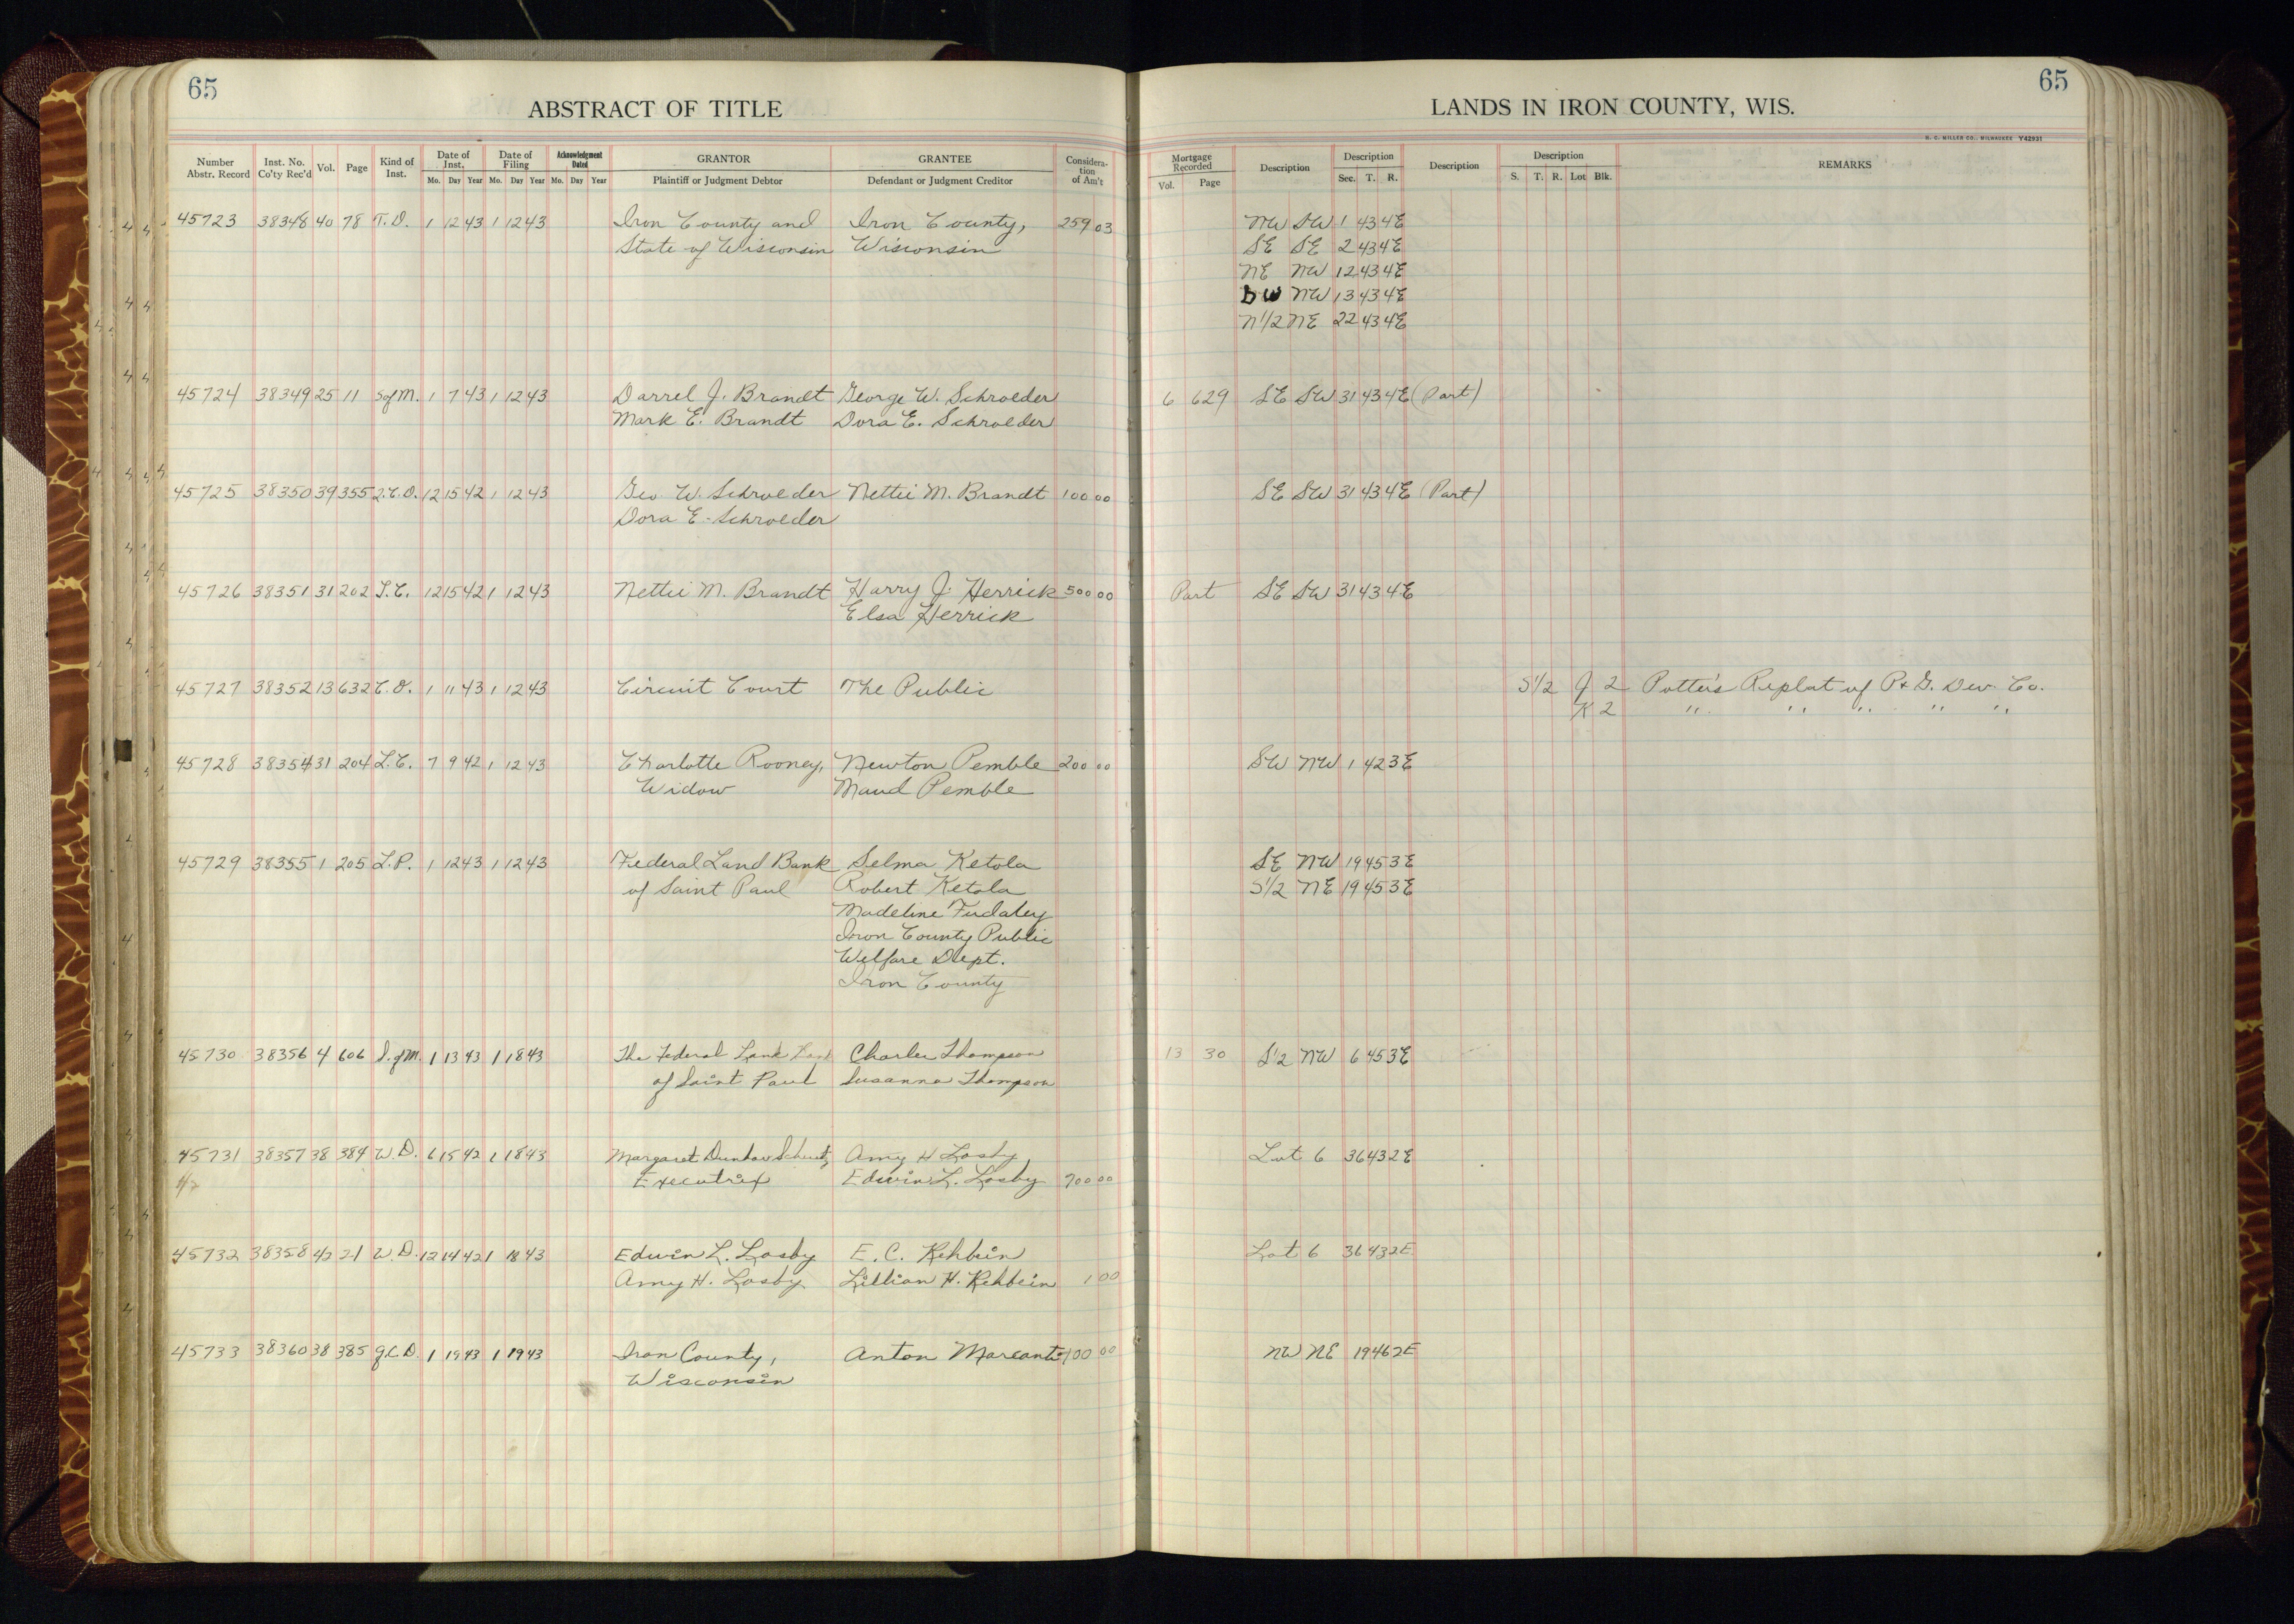 65
ABSTRACT OF TITLE
Number Abstr. Record Inst. No. Co'ty Rec'd Vol. Page Kind of Inst. Date of Inst. Mo. Day Year Date of Filing Mo. Day Year Acknowledgment Dated Mo. Day Year GRANTOR Plaintiff or Judgment Debtor GRANTEE Defendant or Judgment Creditor Considera-tion of Am't
45723 38348 40 78 T.D. 1 12 43 1 12 43 Iron County and Iron County, 259 03
State of Wisconsin Wisconsin
45724 38349 25 11 S of M. 1 7 43 1 12 43 Darrel J. Brandt George W. Schroeder
Mark E. Brandt Dora E. Schroeder
45725 38350 39 355 Q.C.D. 12 15 42 1 12 43 Geo. W. Schroeder Nettie M. Brandt 100 00
Dora E. Schroeder
45726 38351 31 202 L.C. 12 15 42 1 12 43 Nettie M. Brandt Harry J. Herrick 500 00
Elsa Herrick
45727 38352 13 632 C.D. 1 11 43 1 12 43 Circuit Court The Public
45728 38354 31 204 L.C. 7 9 42 1 12 43 Charlotte Rooney, Newton Pemble 200 00
Widow Maud Pemble
45729 38355 1 205 L.P. 1 12 43 1 12 43 Federal Land Bank Selma Ketola
of Saint Paul Robert Ketola
Madeline
Iron County Public
Welfare Dept.
Iron County
45730 38356 4 606 S. of M. 1 13 43 1 18 43 The Federal Land Bank Charles Thompson
of Saint Paul Susanna Thompson
45731 38357 38 384 W.D. 6 15 42 1 18 43 Margaret Dunbar Amy H Losby,
Executrix Edwin L. Losby 900 00
45732 38358 42 21 W.D. 12 14 42 1 18 43 Edwin L. Losby E.C. Rehbein
Amy H. Losby Lillian H. Rehbein 1 00
45733 38360 38 385 Q.C.D. 1 19 43 1 19 43 Iron County, Anton Marcanti 100 00
Wisconsin
65
LANDS IN IRON COUNTY, WIS.
H. C. MILLER CO., MILWAUKEE Y42931
Mortgage Recorded Vol. Page Description Description Sec. T. R. Description Description S. T. R. Lot Blk. REMARKS
NW SW 1 43 4E
SE SE 2 43 4E
NE NW 12 43 4E
SW NW 13 43 4E
N1/2 NE 22 43 4E
6 629 SE SW 31 43 4E (Part)
SE SW 31 43 4E (Part)
Part SE SW 31 43 4E
S1/2 J 2 Potter's Replat of P&G. Dev. Co.
K 2 " " " " "
SW NW 1 42 3E
SE NW 19 45 3E
S1/2 NE 19 45 3E
13 30 S1/2 NW 6 45 3E
Lot 6 36 43 2E
Lot 6 36 43 2E
NW NE 19 46 2E